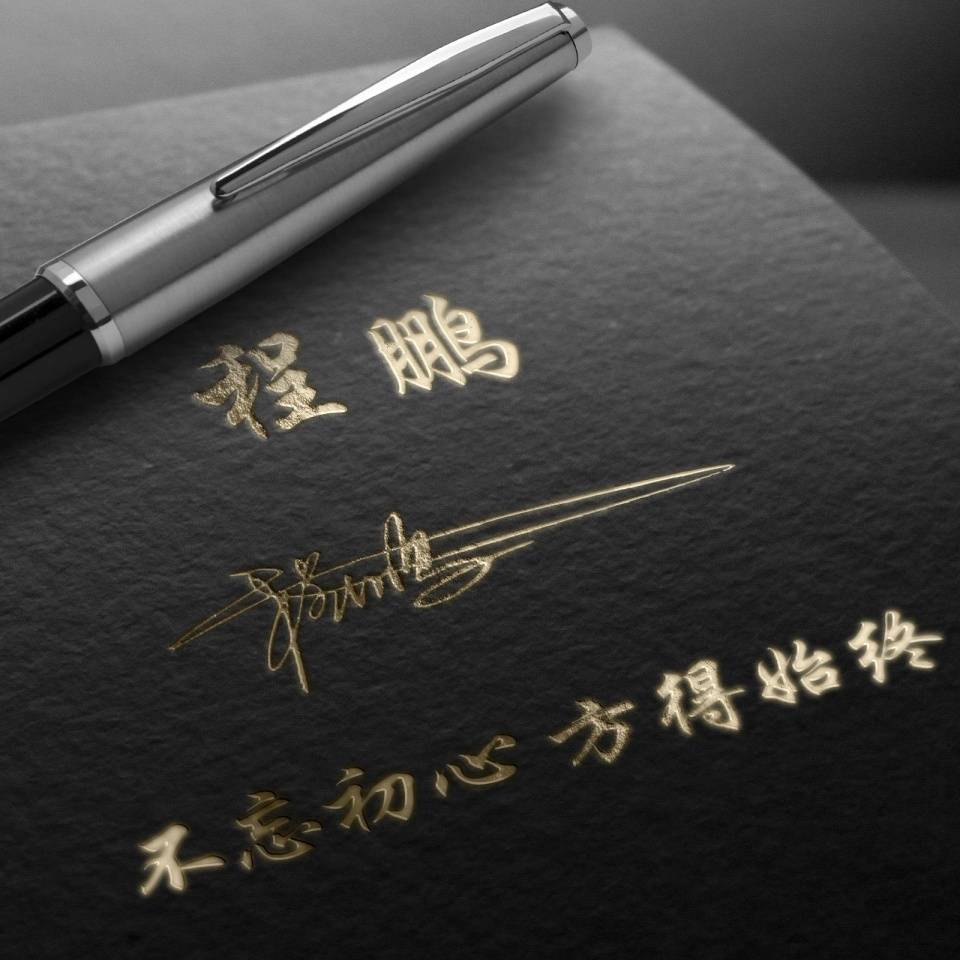 程鹏
不忘初心 方得始终